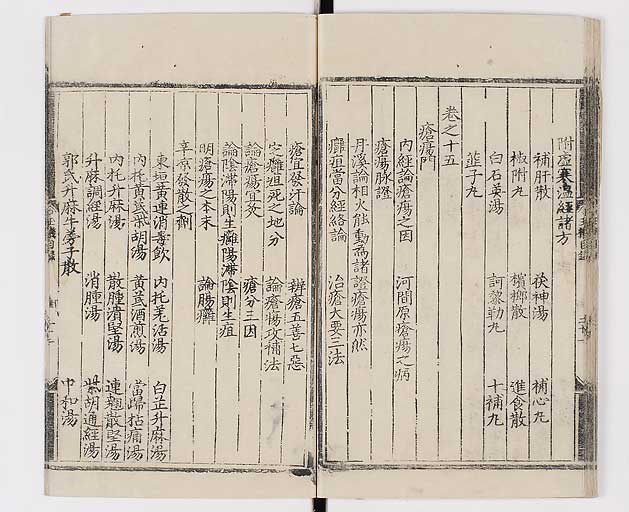 附虛寒溫經諸方
補肝散 茯神湯 補心丸
椒附丸 檳榔散 進食散
白石英湯 訶黎勒丸 十補丸
韮子丸
卷之十五
瘡瘍門
內經論瘡瘍之因 河間原瘡瘍之病
瘡瘍脉證
丹溪論相火能動為諸證瘡瘍亦然
癰疽當分經絡論 治瘡大要三法
瘡宜發汗論 辨瘡五善七惡
定癰疽死之地分 論瘡瘍攻補法
論瘡瘍宜灸 瘡分三因
論陰滯陽則生癰陽滯陰則生疽
明瘡瘍之本末 論腸癰
辛凉發散之劑
東垣黃連消毒飲 內托羌活湯 白芷升麻湯
內托黃芪柴胡湯 黃芪酒煎湯 當歸拈痛湯
內托升麻湯 散腫潰堅湯 連翹散堅湯
升麻調經湯 消腫湯 柴胡通經湯
郭氏升麻牛蒡子散 中和湯